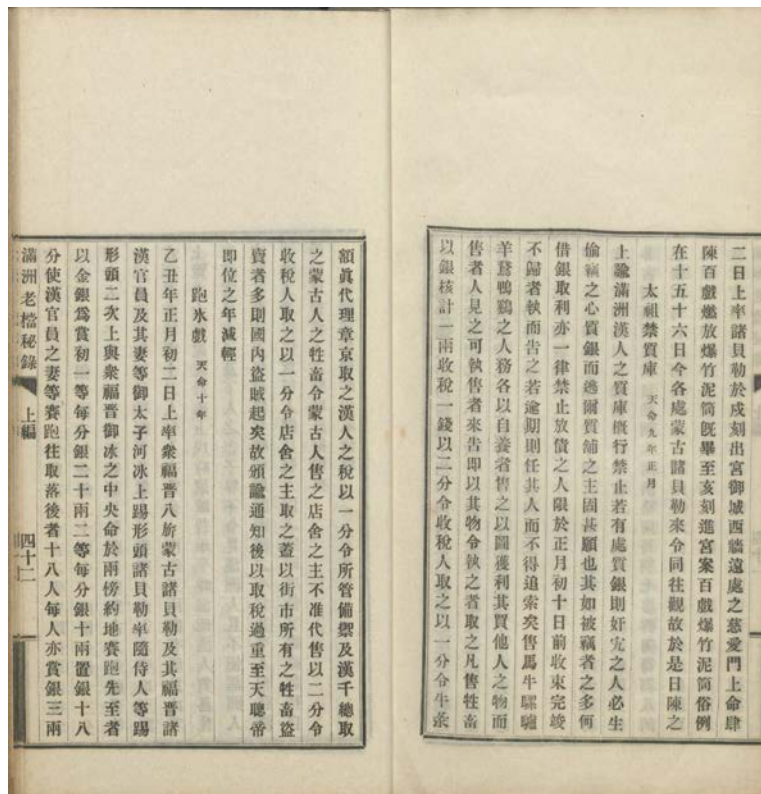 二日上率諸貝勒於戍刻出宮御城西牆遠處之慈愛門上命肆
陳百戲燃放爆竹泥筒旣畢至亥刻進宮案百戲爆竹泥筒俗例
在十五十六日今各處蒙古諸貝勒來令同往觀故於是日陳之
太祖禁質庫 天命九年正月
上諭滿洲漢人之質庫槪行禁止若有處質銀則奸宄之人必生
偷竊之心質銀而逃爾質舖之主固甚願也其如被竊者之多何
借銀取利亦一律禁止放債之人限於正月初十日前收束完竣
不歸者執而告之若逾期則任其人而不得追索矣售馬牛騾驢
羊鵞鴨鷄之人務各以自養者售之以圖獲利其買他人之物而
售者人見之可執售者來告卽以其物令執之者取之凡售牲畜
以銀核計一兩收稅一錢以二分令收稅人取之以一分令牛彔
額眞代理章京取之漢人之稅以一分令所管備禦及漢千總取
之蒙古人之牲畜令蒙古人售之店舍之主不准代售以二分令
收稅人取之以一分令店舍之主取之蓋以街市所有之牲畜盜
賣者多則國內盜賊起矣故頒諭通知後以取稅過重至天聰帝
卽位之年減輕
跑氷戲 天命十年
乙丑年正月初二日上率衆福晋八旂蒙古諸貝勒及其福晋諸
漢官員及其妻等御太子河氷上踢形頭諸貝勒率隨侍人等踢
形頭二次上與衆福晋御氷之中央命於兩傍約地賽跑先至者
以金銀爲賞初一等每分銀二十兩二等每分銀十兩置銀十八
分使漢官員之妻等賽跑往取落後者十八人每人亦賞銀三兩
滿洲老檔秘錄 上編 四十二